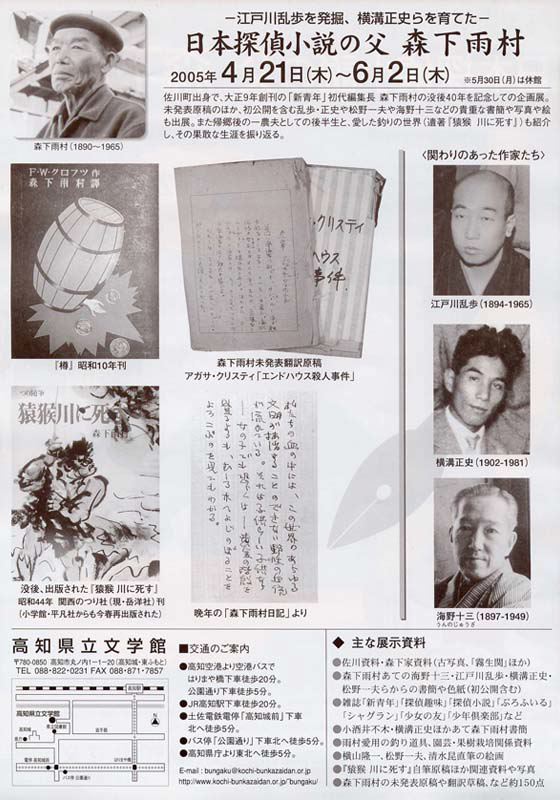 −江戸川乱歩を発掘、横溝正史らを育てた−
日本探偵小説の父 森下雨村
2005年4月21日(木)〜6月2日(木) ※5月30日(月)は休館
佐川町出身で、大正9年創刊の「新青年」初代編集長 森下雨村の没後40年を記念しての企画展。
未発表原稿のほか、初公開を含む乱歩・正史や松野一夫や海野十三などの貴重な書簡や写真や絵
も出展。また帰郷後の一農夫としての後半生と、愛した釣りの世界(遺著『猿猴 川に死す』)も紹介
し、その果敢な生涯を振り返る。
森下雨村(1890〜1965)
F・W・クロフツ作
森下雨村譯
『樽』昭和10年刊
クリスティ
ハウス
事件
森下雨村未発表翻訳原稿
アガサ・クリスティ「エンドハウス殺人事件」
〈関わりのあった作家たち〉
江戸川乱歩(1894-1965)
横溝正史(1902-1981)
海野十三(1897-1949)
うんのじゅうざ
つり随筆
猿猴川に死す
森下雨村
没後、出版された『猿猴 川に死す』
昭和44年 関西のつり社(現・岳洋社)刊
(小学館・平凡社からも今春再出版された)
私たちの血の中には、この世界のあらゆる
文明が抹殺することのできない野性の血が
晩年の「森下雨村日記」より
高知県立文学館
〒780-0850 高知市丸ノ内1−1−20(高知城・東ふもと)
TEL 088・822・0231 FAX 088・871・7857
高知駅
高知県立文学館
高知城
追手筋
電停 高知城前
はりまや橋
バス停 公園通り
■交通のご案内
●高知空港より空港バスで
はりまや橋下車徒歩20分。
公園通り下車徒歩5分。
●JR高知駅下車徒歩20分。
●土佐電鉄電停「高知城前」下車
北へ徒歩5分。
●バス停「公園通り」下車北へ徒歩5分。
●高知県庁より東北へ徒歩5分。
E-mail : bungaku@kochi-bunkazaidan.or.jp
http://www.kochi-bunkazaidan.or.jp/~bungaku/
◆ 主な展示資料
●佐川資料・森下家資料(古写真、「霧生関」ほか)
●森下雨村あての海野十三・江戸川乱歩・横溝正史・
松野一夫らからの書簡や色紙(初公開含む)
●雑誌「新青年」「探偵趣味」「探偵小説」「ぷろふいる」
「シャグラン」「少女の友」「少年倶楽部」など
●小酒井不木・横溝正史ほかあて森下雨村書簡
●雨村愛用の釣り道具、園芸・果樹栽培関係資料
●横山隆一、松野一夫、清水昆直筆の絵画
●『猿猴 川に死す』自筆原稿ほか関連資料や写真
●森下雨村の未発表原稿や翻訳草稿、など約150点